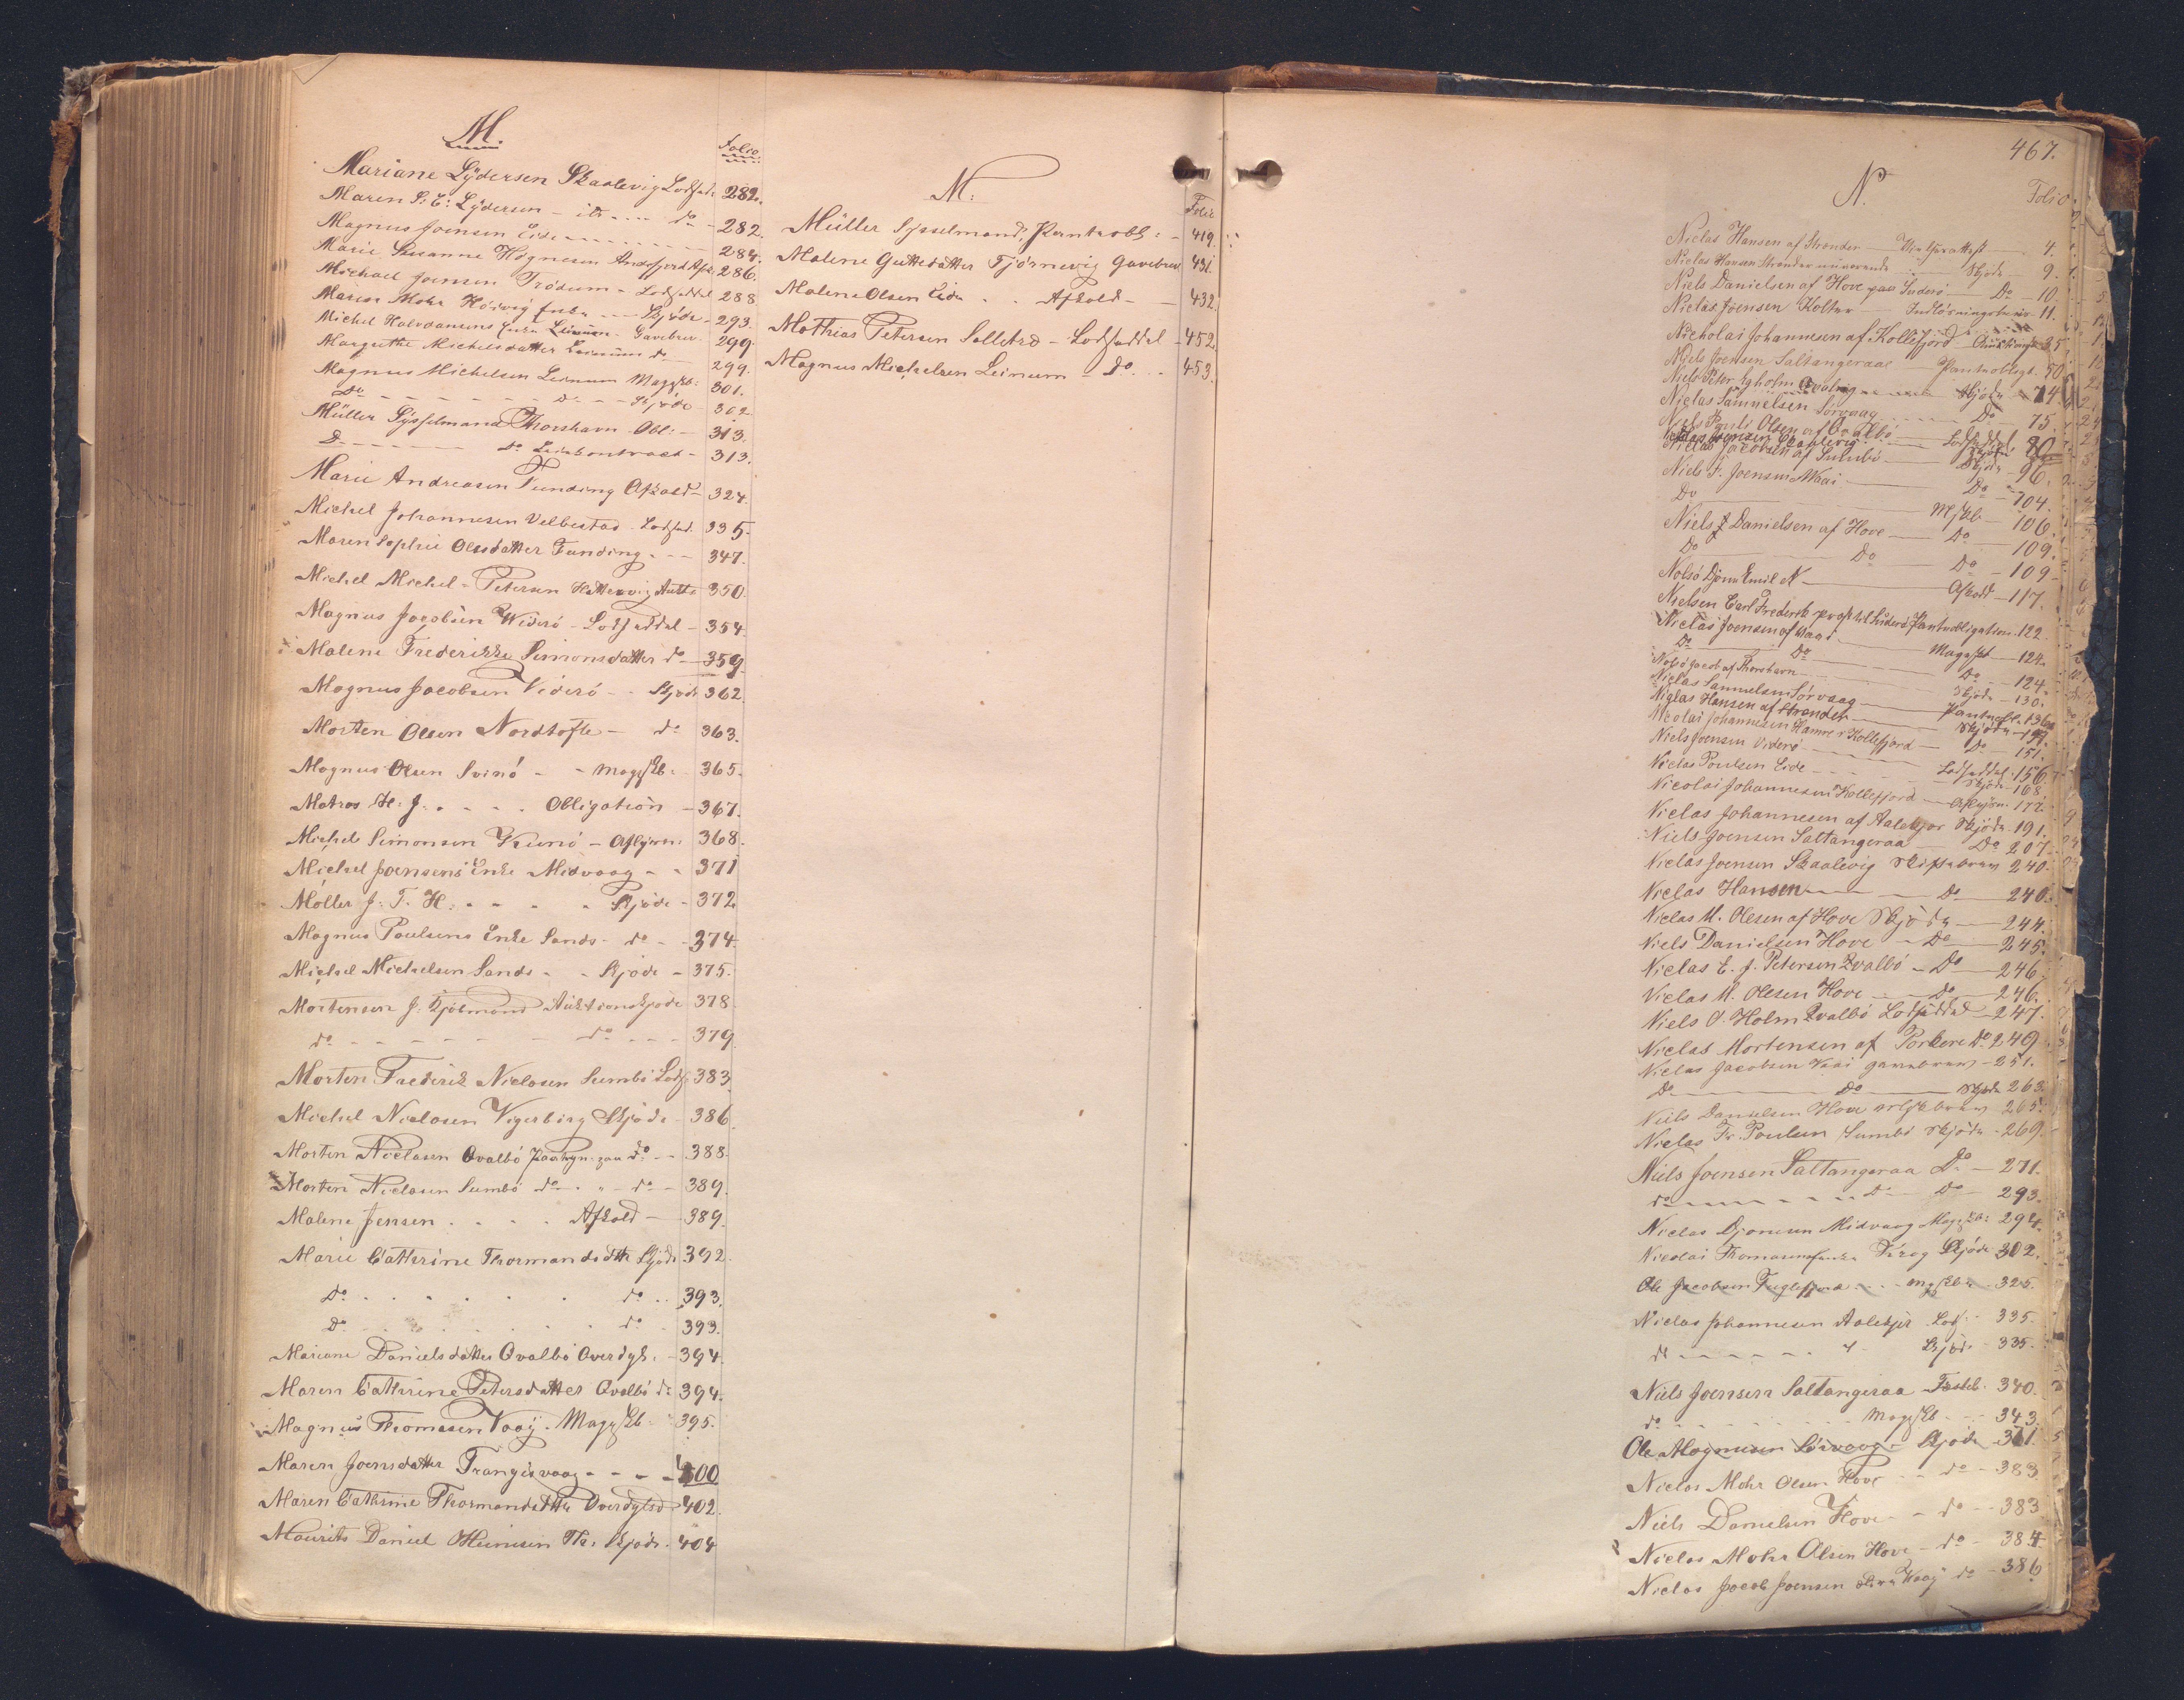 M.
Folio
Mariane Lydersen Skaalevig Lodsed. 282.
Maren S: E: Lydersen - do - 282.
Magnus Joensen Eide - 284.
Marie Susanne Høgnesen Andefjord Afk. 286.
Michael Joensen Trödum - Lodseddel 288
Maren Mohr Hoivig - Skjøde - 293.
Michel Halvdansens Enke Leinum - Gavebrev. 299
Margrethe Michelsdatter Leinum do 299.
Magnus Michelsen Leinum Magesk: 301.
Do - - - Do - - Skjøde - 302
Müller Sysselmand Thorshavn Obl: - 313.
D - - - - Do Leiekontract - 313.
Marie Andreasen Funding Afkald - 324.
Michel Johannesen Velbestad - Lodsed. 335.
Maren Sophie Olesdatter Funding - - - 347.
Michel Michel-Petersen Hattervig 350.
Magnus Jacobsen Viderö - Lodseddel - 354.
Malene Frederikke Simonsdatter do - 359.
Magnus Jacobsen Viderö - - Skjøde 362.
Morten Olsen Nordtofte - do 363.
Magnus Olsen Svinö - - Mageskb: - 365.
Matras H: J: . . . . Obligation - 367.
Michel Simonsen Kunö - 368.
Michel Joensens Enke Midvaag - - 371
Möller J. T. H. - - - - Skjøde - 372
Magnus Poulsens Enke Sands - do - - 374.
Michel Michelsen Sands - - Skjøde - 375.
Mortensen J. Kjöbmand Auktionsskjøde 378
do - - - - - do - - - 379.
Morten Frederik Niclasen Sumbö Lods. 383.
Michel Niclasen Vigerbirg Skjøde - 386.
Morten Niclasen Qvalbö do - - 388.
Morten Niclasen Sumbö do - " - do - 389.
Malene Jensen . . . . Afkald - 389.
Marie Cathrine Thormandsdttr Skjøde 392.
Do . . . . . do . . 393.
Do . . . . . do . 393.
Mariane Danielsdatter Qvalbö Overdgl. - 394.
Maren Cathrine Petersdatter Qvalbö do 394.
Magnus Thomasen Vaag - Mageskb: 395.
Maren Joensdatter Trangisvaag - - - 400
Maren Cathrine Thormandsdttr Overdgls 402.
Maurits Daniel Heinesen Th: Skjøde. 404
M:
Folio
Müller Sysselmand, Panteobl: - 419.
Malene Guttesdatter Tjörnevig Gavebrev 431.
Malene Olsen Eide . . Afkald - - 432.
Mathias Petersen Selletræ - Lodseddel - 452.
Magnus Michelsen Leinum - Do . . 453.
467.
N.
Folio
Niclas Hansen af Strender - 4.
Niclas Hansen Strender - Skjøde - 9.
Niels Danielsen af Hove paa Suderö - Do - 10.
Niclas Joensen Kolter - Indlösningsbevis - 11.
Nicholai Johannesen af Kollefjord - 35.
Niels Joensen Saltangeraae - Panteobligt. 50
Niels Peter Egholm Qvalvig - Skjøde - 74
Niclas Samuelsen Sörvaag - Do - 75.
Niels Pauli Olsen af Qvalbö - Lodseddel 80
Niclas Jacobsen af Sumbö - Skjøde - 96.
Niels J. Joensen Waai - Do - 104.
Do - Mskb - 106.
Niels J Danielsen af Hove - Do - 109.
Do - Do - Do - 109.
Nolsö Djone Emil N - Afkald - 117.
Nielsen Carl Frederik Suderö Panteobligation - 122.
Niclas Joensen af Waai - Magesk - 124.
Do - Do - Do - 124.
Nolsö Jacob af Thorshavn - Skjøde - 130.
Niclas Samuelsen Sörvaag - Panteobl. 136
Niclas Hansen af Strender - Skjøde - 139.
Nicolai Johannesen Hamre i Kollefjord - Do - 151.
Niels Joensen Viderö - Lodseddel - 156.
Niclas Poulsen Eide - Skjøde - 168.
Nicolai Johannesen Kollefjord - 177.
Niclas Johannesen af Aalekjer Skjøde - 191.
Niels Joensen Saltangeraa - Do 207.
Niclas Joensen Skaalevig Skiftebrev 240.
Niclas Hansen - Do - 240.
Niclas M. Olesen af Hove Skjøde - 244.
Niels Danielsen Hove - Do - 245.
Niclas E. J. Petersen Qvalbö - Do - 246.
Niclas M. Olesen Hove - Do - 246.
Niels O. Holm Qvalbö Lodseddel - 247.
Niclas Mortensen af Porkere Do 249
Niclas Jacobsen Vaai gavebrev - 251.
Do - Do - Skjøde 263.
Niels Danielsen Hove 265.
Niclas Fr. Poulsen Sumbö Skjøde - 269.
Niels Joensen Saltangeraa Do - 271.
do - - - - - do - Do - 293.
Niclas Djonesen Midvaag Mageskb: 294.
Nicolai Thomasens Enke Krog Skjøde 302.
Ole Jacobsen Fuglefjord . . . Mgskb - 325.
Niclas Johannesen Aalekjer Lods - 335.
do - - - - - Skjøde - 335.
Niels Joensen Saltangeraa Festeb. 340.
do - - - - - Mageskb - - 343.
Ole Magnusen Sörvaag - Skjøde - 361.
Niclas Mohr Olsen Hove - - do - 383
Niels Danielsen Hove - - do - - 383
Niclas Mohr Olsen Hove - do - 384.
Niclas Jacob Joensen Vaag do - 386